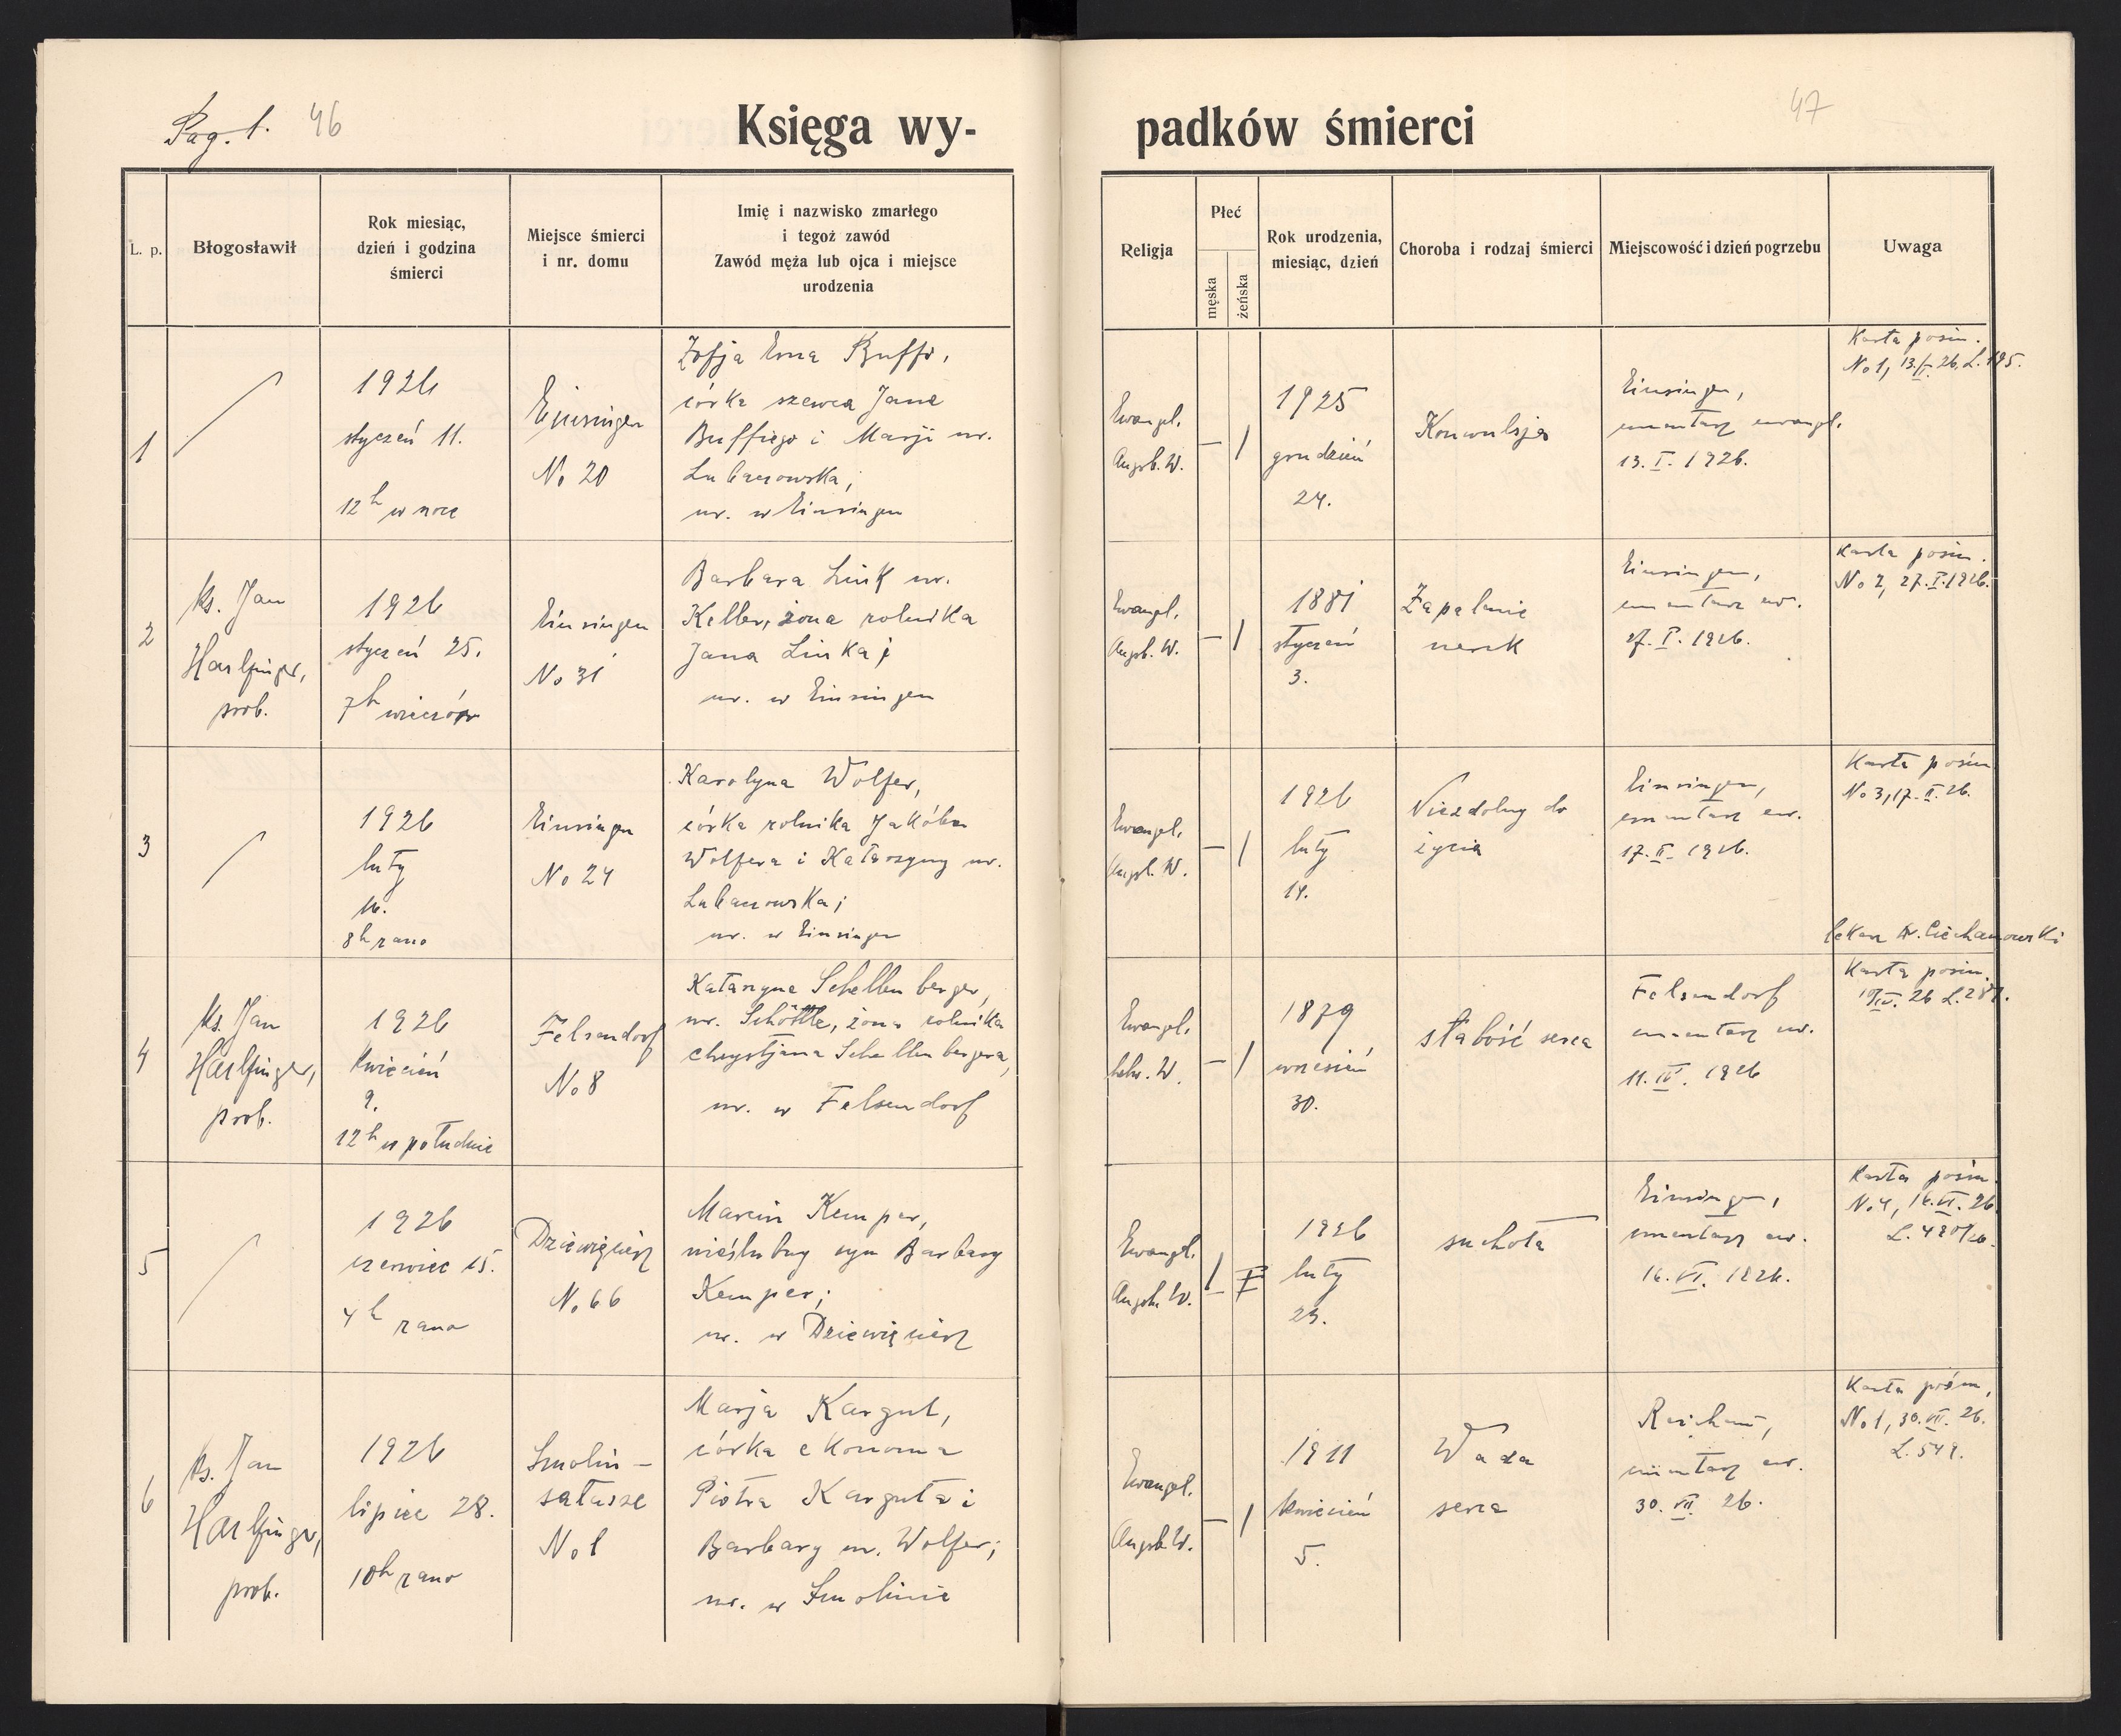 Pag. 1. 46
47
Księga wy-
padków śmierci
L. p.
Błogosławił
Rok miesiąc,
dzień i godzina
śmierci
Miejsce śmierci
i nr. domu
Imię i nazwisko zmarłego
i tegoż zawód
Zawód męża lub ojca i miejsce
urodzenia
Religja
Płeć
męska
żeńska
Rok urodzenia,
miesiąc, dzień
Choroba i rodzaj śmierci
Miejscowość i dzień pogrzebu
Uwaga
1
1926
styczeń 11.
12h w nocy
Einsingen
No 20
Zofja Erna Buffi,
córka szewca Jana
Buffiego i Marji ur.
Lubaczowska;
ur. w Einsingen
Ewangl.
Augsb. W.
— /
1925
grudzień
24.
Konwulsja
Einsingen,
cmentarz ewangl.
13. I. 1926.
Karta pośm.
No 1, 13./I. 26. L. 195.
2
ks. Jan
Harlfinger,
prob.
1926
styczeń 25.
7h wieczór
Einsingen
No 31
Barbara Link ur.
Keller, żona rolnika
Jana Linka;
ur. w Einsingen
Ewangl.
Augsb. W.
— /
1881
styczeń
3.
Zapalenie
nerek
Einsingen,
cmentarz ew.
27. I. 1926.
Karta pośm.
No 2, 27. I. 1926.
3
1926
luty
16.
8h rano
Einsingen
No 24
Karolyna Wolfer,
córka rolnika Jakóba
Wolfera i Katarzyny ur.
Lubaczowska;
ur. w Einsingen
Ewangel.
Augsb. W.
— /
1926
luty
14.
Niezdolny do
życia
Einsingen,
cmentarz ew.
17. II. 1926.
Karta pośm
No 3, 17. II. 26.
4
ks. Jan
Harlfinger,
prob.
1926
kwiecień
9.
12h w południe
Felsendorf
No 8
Katarzyna Schellenberger,
ur. Schöttle, żona rolnika
Chrystjana Schellenbergera,
ur. w Felsendorf
Ewangel.
helw. W.
— /
1879
wrzesień
30.
słabość serca
Felsendorf
cmentarz ew.
11. IV. 1926
lekarz Dr. Ciechanowski
Karta pośm.
10/IV. 26 L. 287.
5
1926
czerwiec 15.
4h rano
Dziewięcierz
No 66
Marcin Kemper,
nieślubny syn Barbary
Kemper;
ur. w Dziewięcierz
Ewangel.
Augsb. W.
/ —
1926
luty
23.
suchota
Einsingen,
cmentarz ew.
16. VI. 1926.
Karta pośm.
No 4, 16. VI. 26.
L. 420/26.
6
ks. Jan
Harlfinger,
prob.
1926
lipiec 28.
10h rano
Smolin-
sałasze
No 1
Marja Kargut,
córka ekonoma
Piotra Karguta i
Barbary ur. Wolfer;
ur. w Smolinie
Ewangel.
Augsb. W.
— /
1911
kwiecień
5.
Wada
serca
Reichau,
cmentarz ew.
30. VII. 26.
Karta pośm,
No 1, 30. VII. 26.
L. 549.